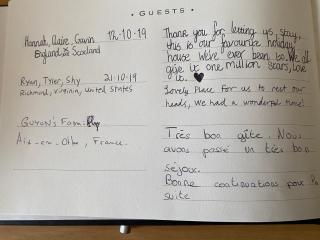 • GUESTS •
Hannah, Claire, Gavin 12-10-19
England & Scotland
Thank you for letting us stay,
this is our favourite holiday
house we've ever been to. We all
give it one million stars, love
us. ♥
Ryan, Tyler, Shy 21-10-19
Richmond, Virginia, United States
Lovely Place for us to rest our
heads, we had a wonderful time!
Guyon's Fam.
Aix-en-Othe, France.
Très bon gîte. Nous
avons passé un très bon
séjour.
Bonne continuations pour la
suite